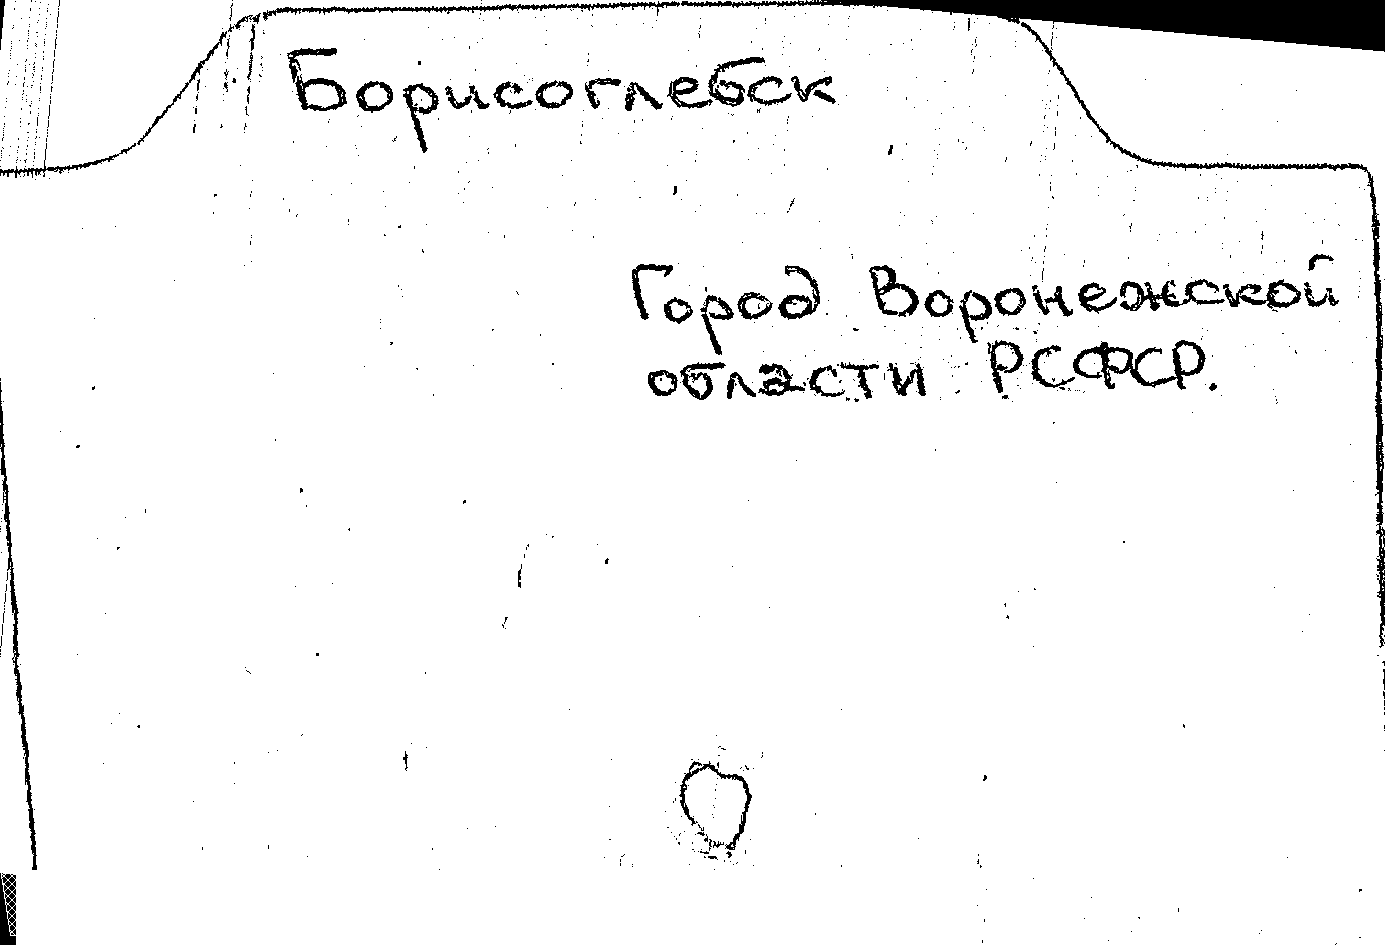 Борисоглебск
Город Воронежской
области РСФСР.